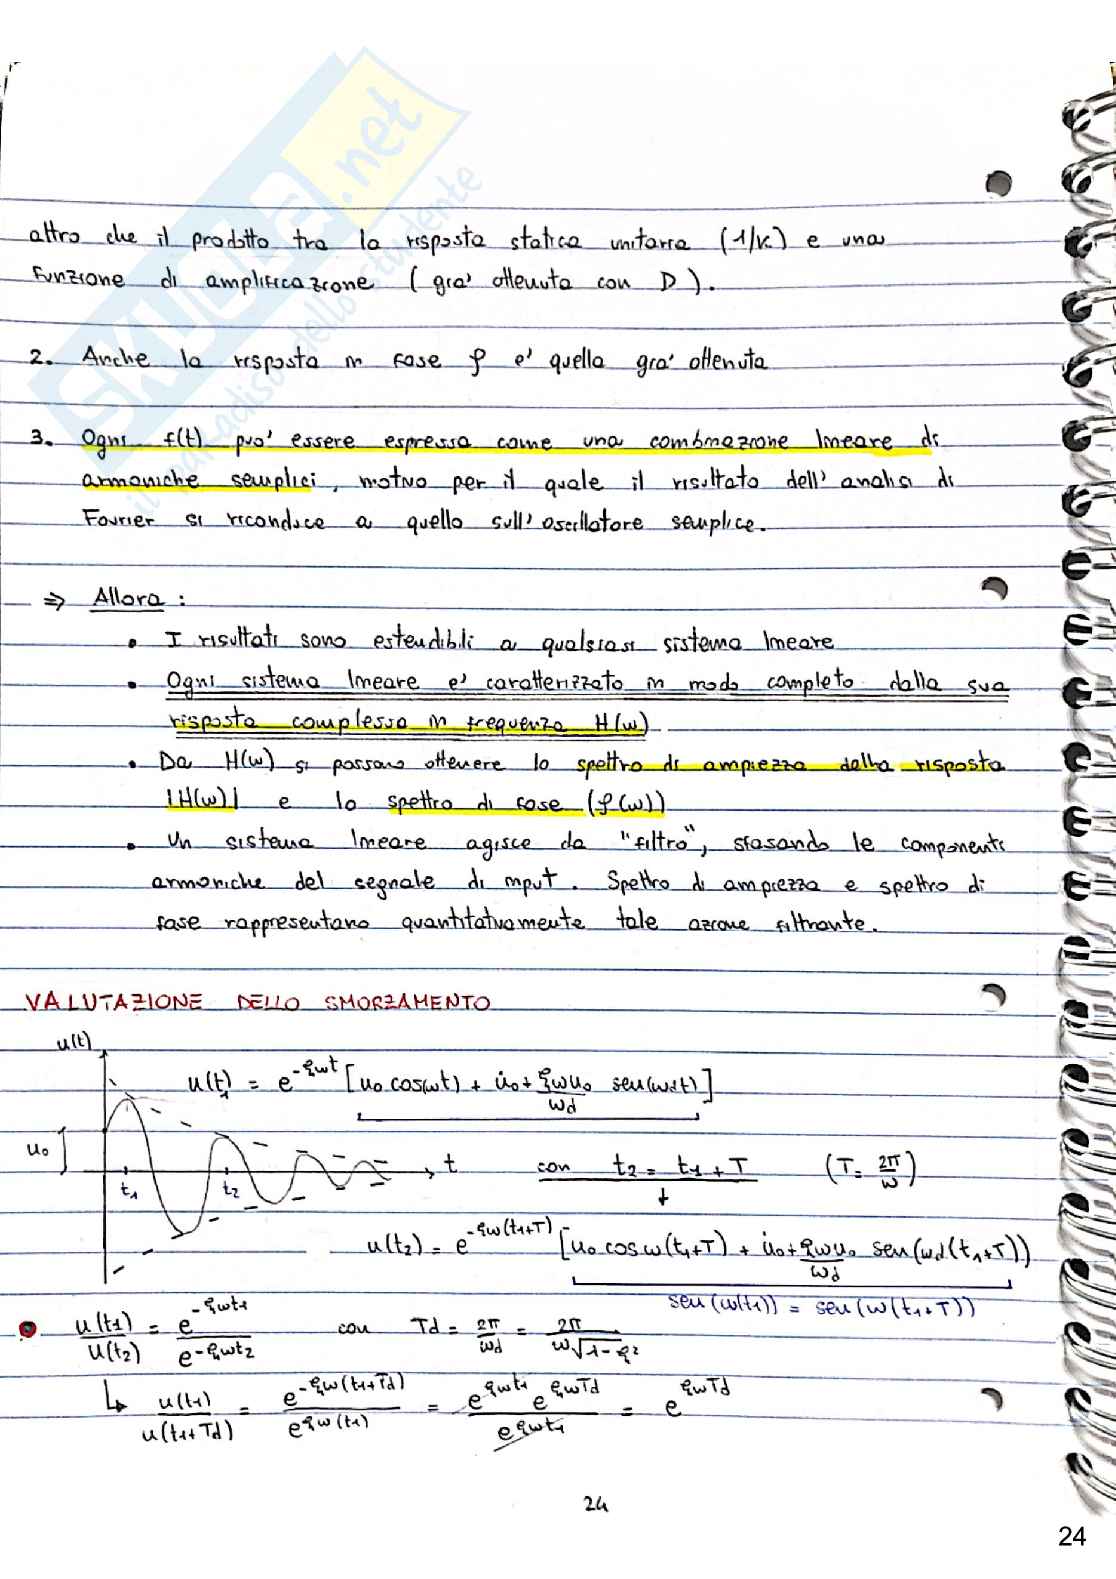 SKUOLA.net
il paradiso dello studente
altro che il prodotto tra la risposta statica unitaria (1/k) e una
funzione di amplificazione (gia' ottenuta con D).
2. Anche la risposta in fase φ e' quella gia' ottenuta
3. Ogni f(t) puo' essere espressa come una combinazione lineare di
armoniche semplici, motivo per il quale il risultato dell'analisi di
Fourier si riconduce a quello sull'oscillatore semplice.
⇒ Allora :
• I risultati sono estendibili a qualsiasi sistema lineare
• Ogni sistema lineare e' caratterizzato in modo completo dalla sua
risposta complessa in frequenza H(ω)
• Da H(ω) si possono ottenere lo spettro di ampiezza della risposta
|H(ω)| e lo spettro di fase (φ(ω))
• Un sistema lineare agisce da "filtro", sfasando le componenti
armoniche del segnale di input. Spettro di ampiezza e spettro di
fase rappresentano quantitativamente tale azione filtrante.
VALUTAZIONE DELLO SMORZAMENTO
u(t)
u(t₁) = e^-ξωt [u₀ cos(ωt) + u̇₀+ξωu₀/ωd sen(ωdt)]
u₀
t₁ t₂ t
con t₂ = t₁ + T (T = 2π/ω)
u(t₂) = e^-ξω(t₁+T) [u₀ cosω(t₁+T) + u̇₀+ξωu₀/ωd sen(ωd(t₁+T))
sen(ω(t₁)) = sen(ω(t₁+T))
u(t₁)/u(t₂) = e^-ξωt₁/e^-ξωt₂ con Td = 2π/ωd = 2π/ω√1-ξ²
↳ u(t₁)/u(t₁+Td) = e^-ξω(t₁+Td)/e^ξω(t₁) = e^ξωt₁ e^ξωTd/e^ξωt₁ = e^ξωTd
24
24